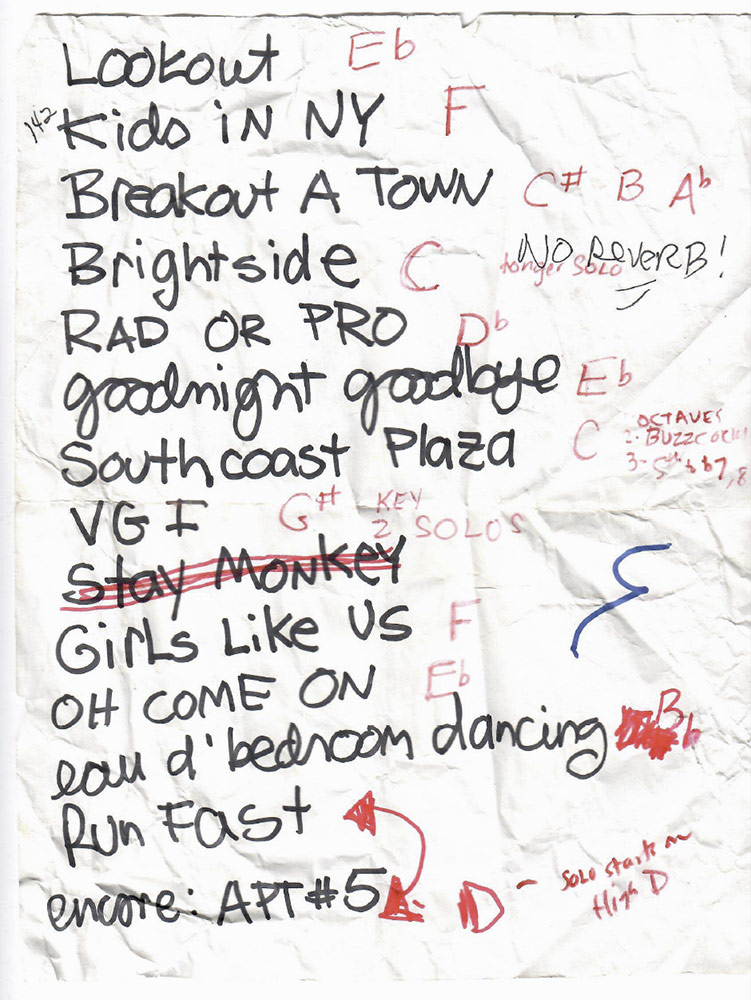 Lookout Eb
142 Kids iN NY F
Breakout A TOWN C# B Ab
Brightside C longer SOLO NO REVERB!
RAD OR PRO Db
goodnight goodbye Eb
Southcoast Plaza C OCTAVES
2. BUZZCOCKS
3-
VGI G# KEY
2 SOLOS
Stay MONKEY
GiRLS Like US F
OH COME ON Eb
eau d'bedroom dancing Bb
Run Fast
encore: APT #5 D - SOLO starts on
High D